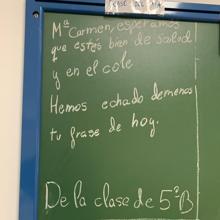 FRASE DEL DÍA
Mª Carmen, esperamos
que estés bien de salud
y en el cole
Hemos echado demenos
tu frase de hoy.
De la clase de 5ºB